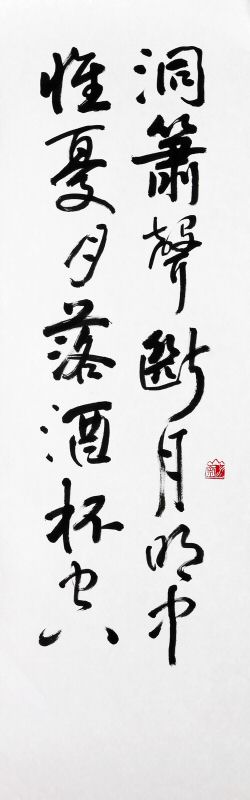 洞簫聲斷月明中
惟憂月落酒杯空